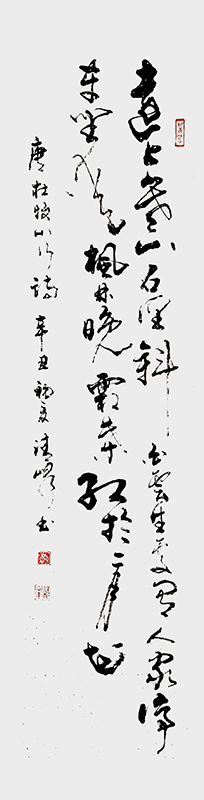 遠上寒山石徑斜白雲生處有人家停
車坐愛楓林晚霜葉紅於二月花
唐杜牧山行詩辛丑初夏書